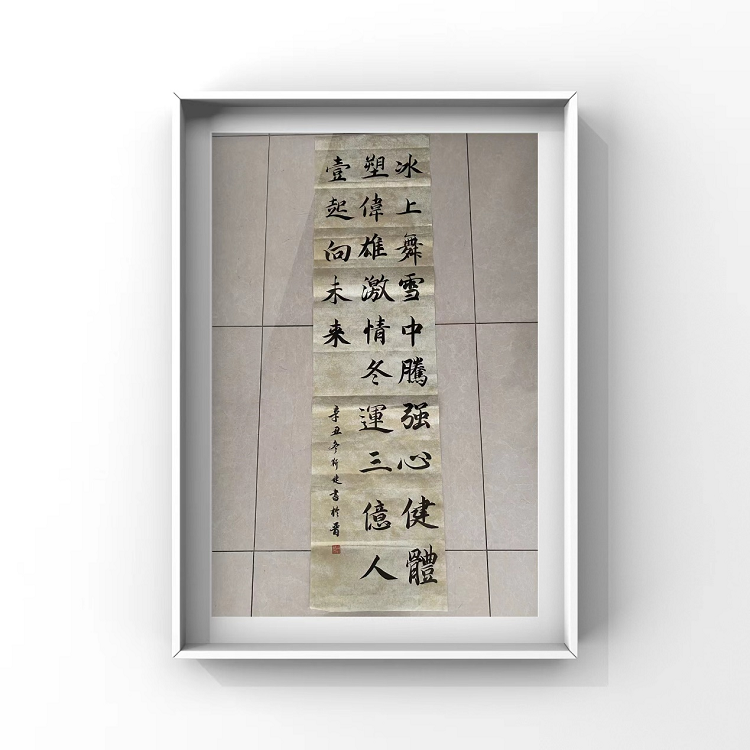 冰上舞雪中騰强心健體
塑偉雄激情冬運三億人
壹起向未来
辛丑冬 書於晋